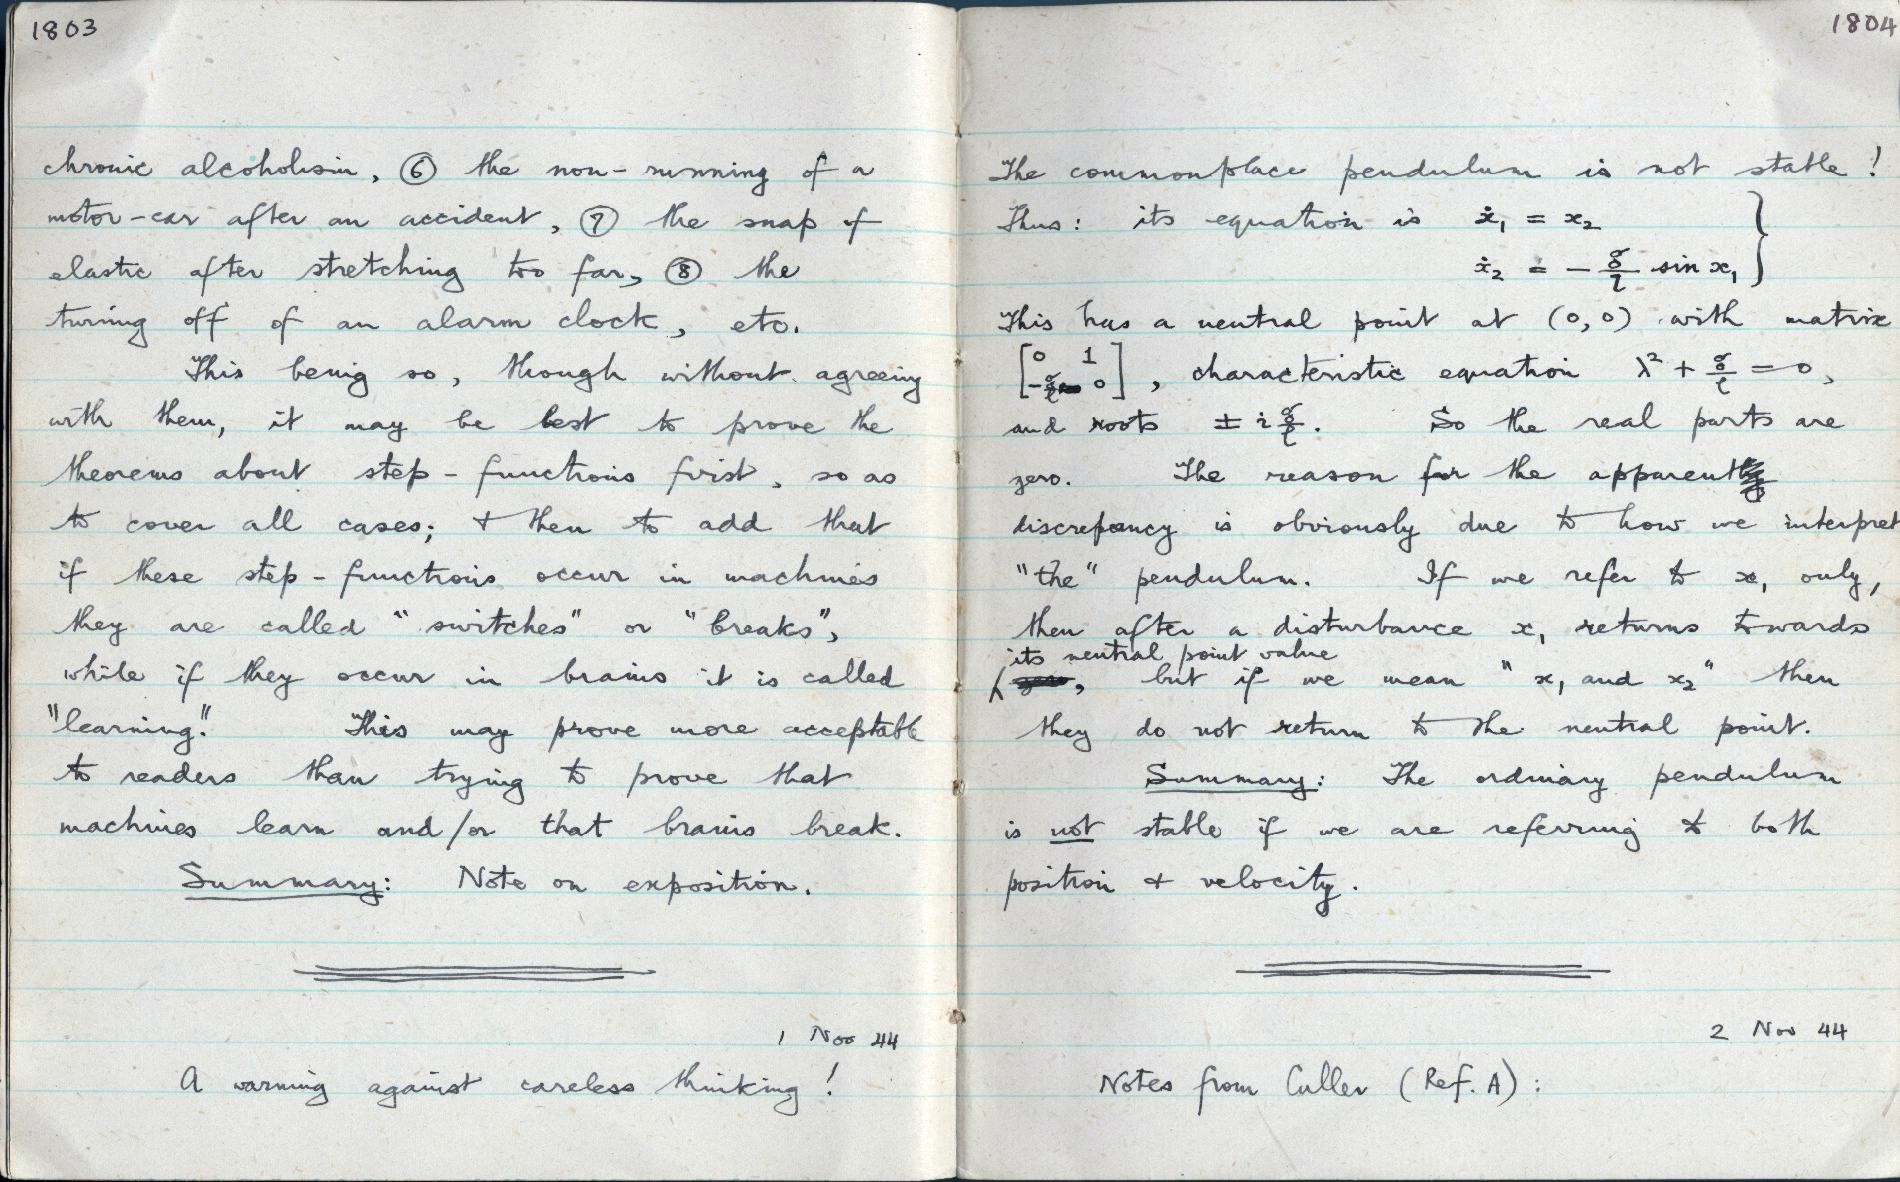 1803
chronic alcoholism, ⑥ the non-running of a
motor-car after an accident, ⑦ the snap of
elastic after stretching too far, ⑧ the
turning off of an alarm clock, etc.
This being so, though without agreeing
with them, it may be best to prove the
theorems about step-functions first, so as
to cover all cases; + then to add that
if these step-functions occur in machines
they are called "switches" or "breaks",
while if they occur in brains it is called
"learning". This may prove more acceptable
to readers than trying to prove that
machines learn and/or that brains break.
Summary: Note on exposition.
1 Nov 44
A warning against careless thinking!
1804
The commonplace pendulum is not stable!
Thus: its equation is ẋ₁ = x₂
ẋ₂ = - g/l sin x₁ }
This has a neutral point at (0,0) with matrix
[0 1; -g/l 0], characteristic equation λ² + g/l = 0,
and roots ± i g/l. So the real parts are
zero. The reason for the apparent
discrepancy is obviously due to how we interpret
"the" pendulum. If we refer to x₁ only,
then after a disturbance x₁ returns towards
its neutral point value
, but if we mean "x₁ and x₂" then
they do not return to the neutral point.
Summary: The ordinary pendulum
is not stable if we are referring to both
position + velocity.
2 Nov 44
Notes from Culler (Ref. A):